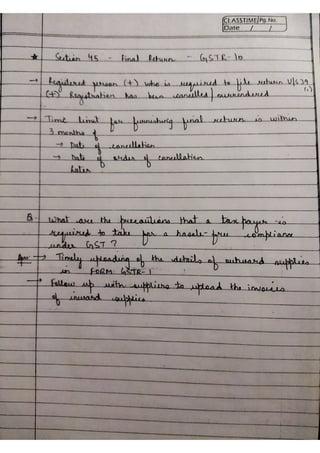 CLASSTIME/Pg.No.
Date / /
★ Section 45 - Final Return - GSTR-10
→ Registered person (+) who is required to file return U/S 39
(1)
(+) Registration has been cancelled / surrendered
→ Time limit for furnishing final return is within
3 months of
→ Date of cancellation
→ Date of order of cancellation
Later
Q What are the precautions that a tax payer is
required to take for a hassle-free compliance
under GST ?
Ans → Timely uploading of the details of outward supplies
in FORM GSTR-1
→ Follow up with suppliers to upload the invoices
of inward supplies